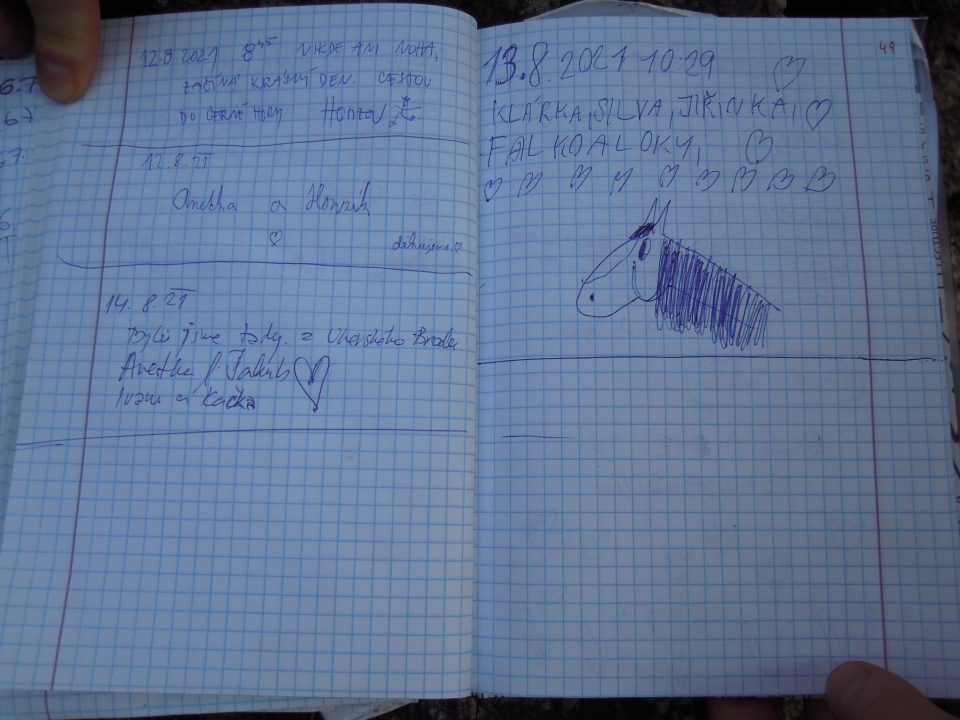 12.8.2021 8⁴⁵ NIKDE ANI NOHA,
ZAČÍNÁ KRÁSNÝ DEN. CESTOU
DO ČERNÉ HORY HONZA
12.8.21
Anetka a Honzík
děkujeme
14.8.21
Byli jsme tady z Uherského Brodu
Anetka Jakub
Ivan a Kačka
6.7
6.7
.7.
6.
49
13.8.2021 10:29
KLÁRKA, SILVA, JIŘINKA,
FALKO A LOKY,